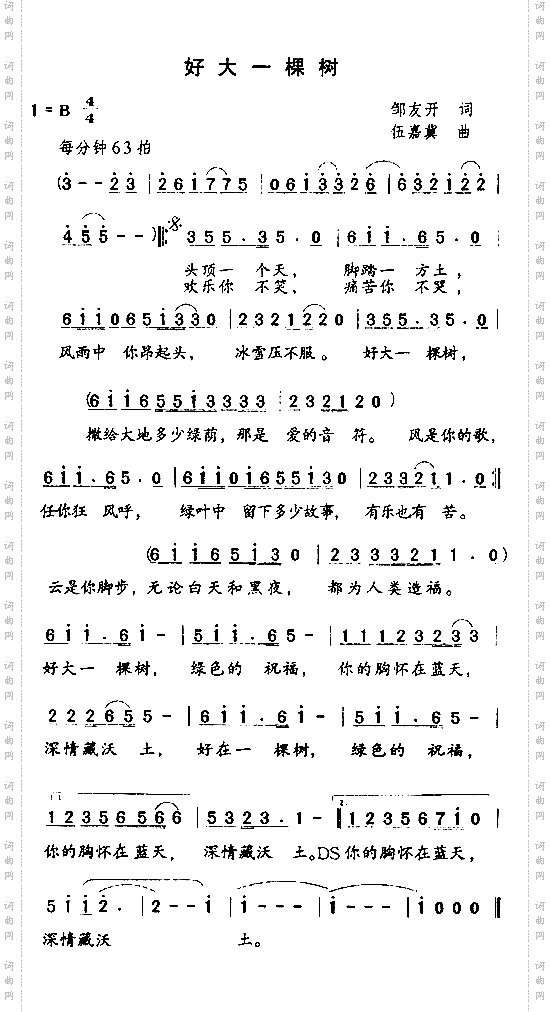 好大一棵树
1=B 4/4
邹友开 词
伍嘉冀 曲
每分钟63拍
(3--23|261775|0613326|632122|
455--)‖:355.35.0|6i i.65.0|
头顶一 个天, 脚踏一 方土,
欢乐你 不笑, 痛苦你 不哭,
6i i065i330|2321220|355.35.0|
风雨中 你昂起头, 冰雪压不服。 好大一 棵树,
(6i i655i3333|2321120)
撒给大地多少绿荫,那是 爱的音 符。 风是你的歌,
6i i.65.0|6i i0i655i30|2332i1.0:‖
任你狂 风呼, 绿叶中 留下多少故事, 有乐也有 苦。
(6i i65i30|2333221 1.0)
云是你脚步,无论白天和黑夜, 都为人类造福。
6i i.6i-|5i i.65-|1112323 3|
好大一 棵树, 绿色的 祝福, 你的胸怀在蓝天,
222655-|6i i.6i-|5i i.65-|
深情藏沃 土, 好在一 棵树, 绿色的 祝福,
1.
2.
123565 66|5323.1-|1235671 0|
你的胸怀在蓝天, 深情藏沃 土。DS你的胸怀在蓝天,
5i i2.|2--i|i---|i---|i000‖
深情藏沃 土。
词曲网